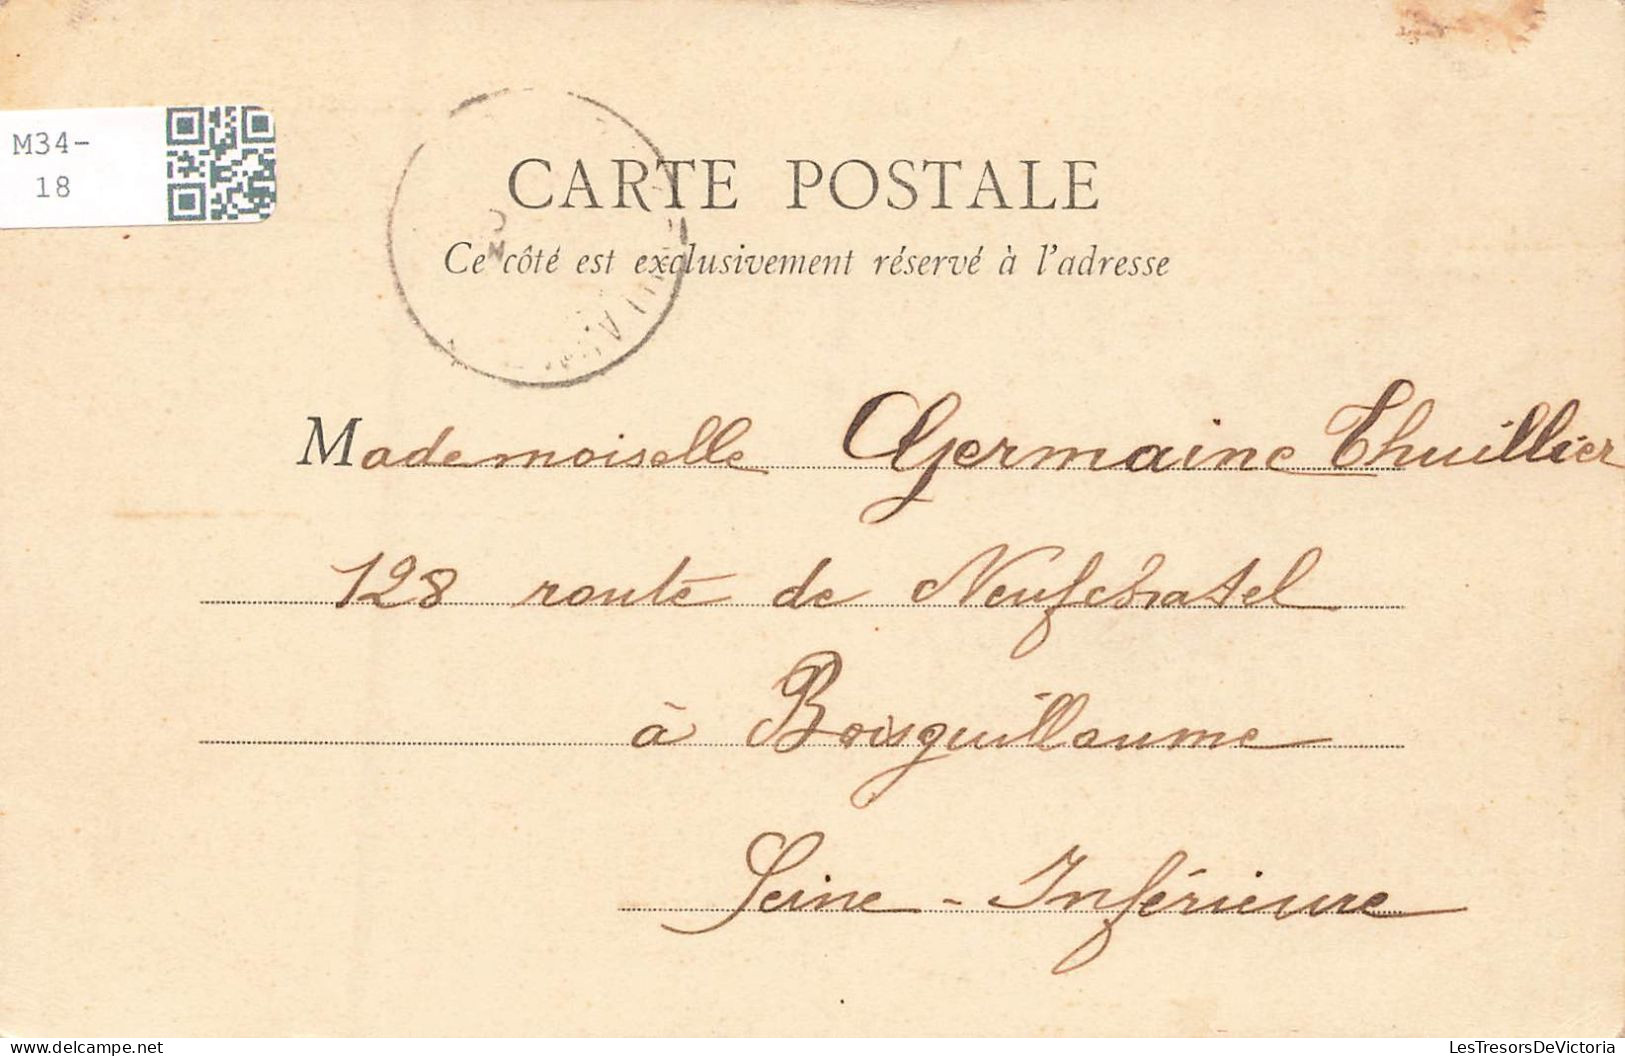 M34-
18
CARTE POSTALE
Ce côté est exclusivement réservé à l'adresse
Mademoiselle Germaine Thuillier
128 route de Neufchatel
à Boisguillaume
Seine-Inférieure
LesTresorsDeVictoria